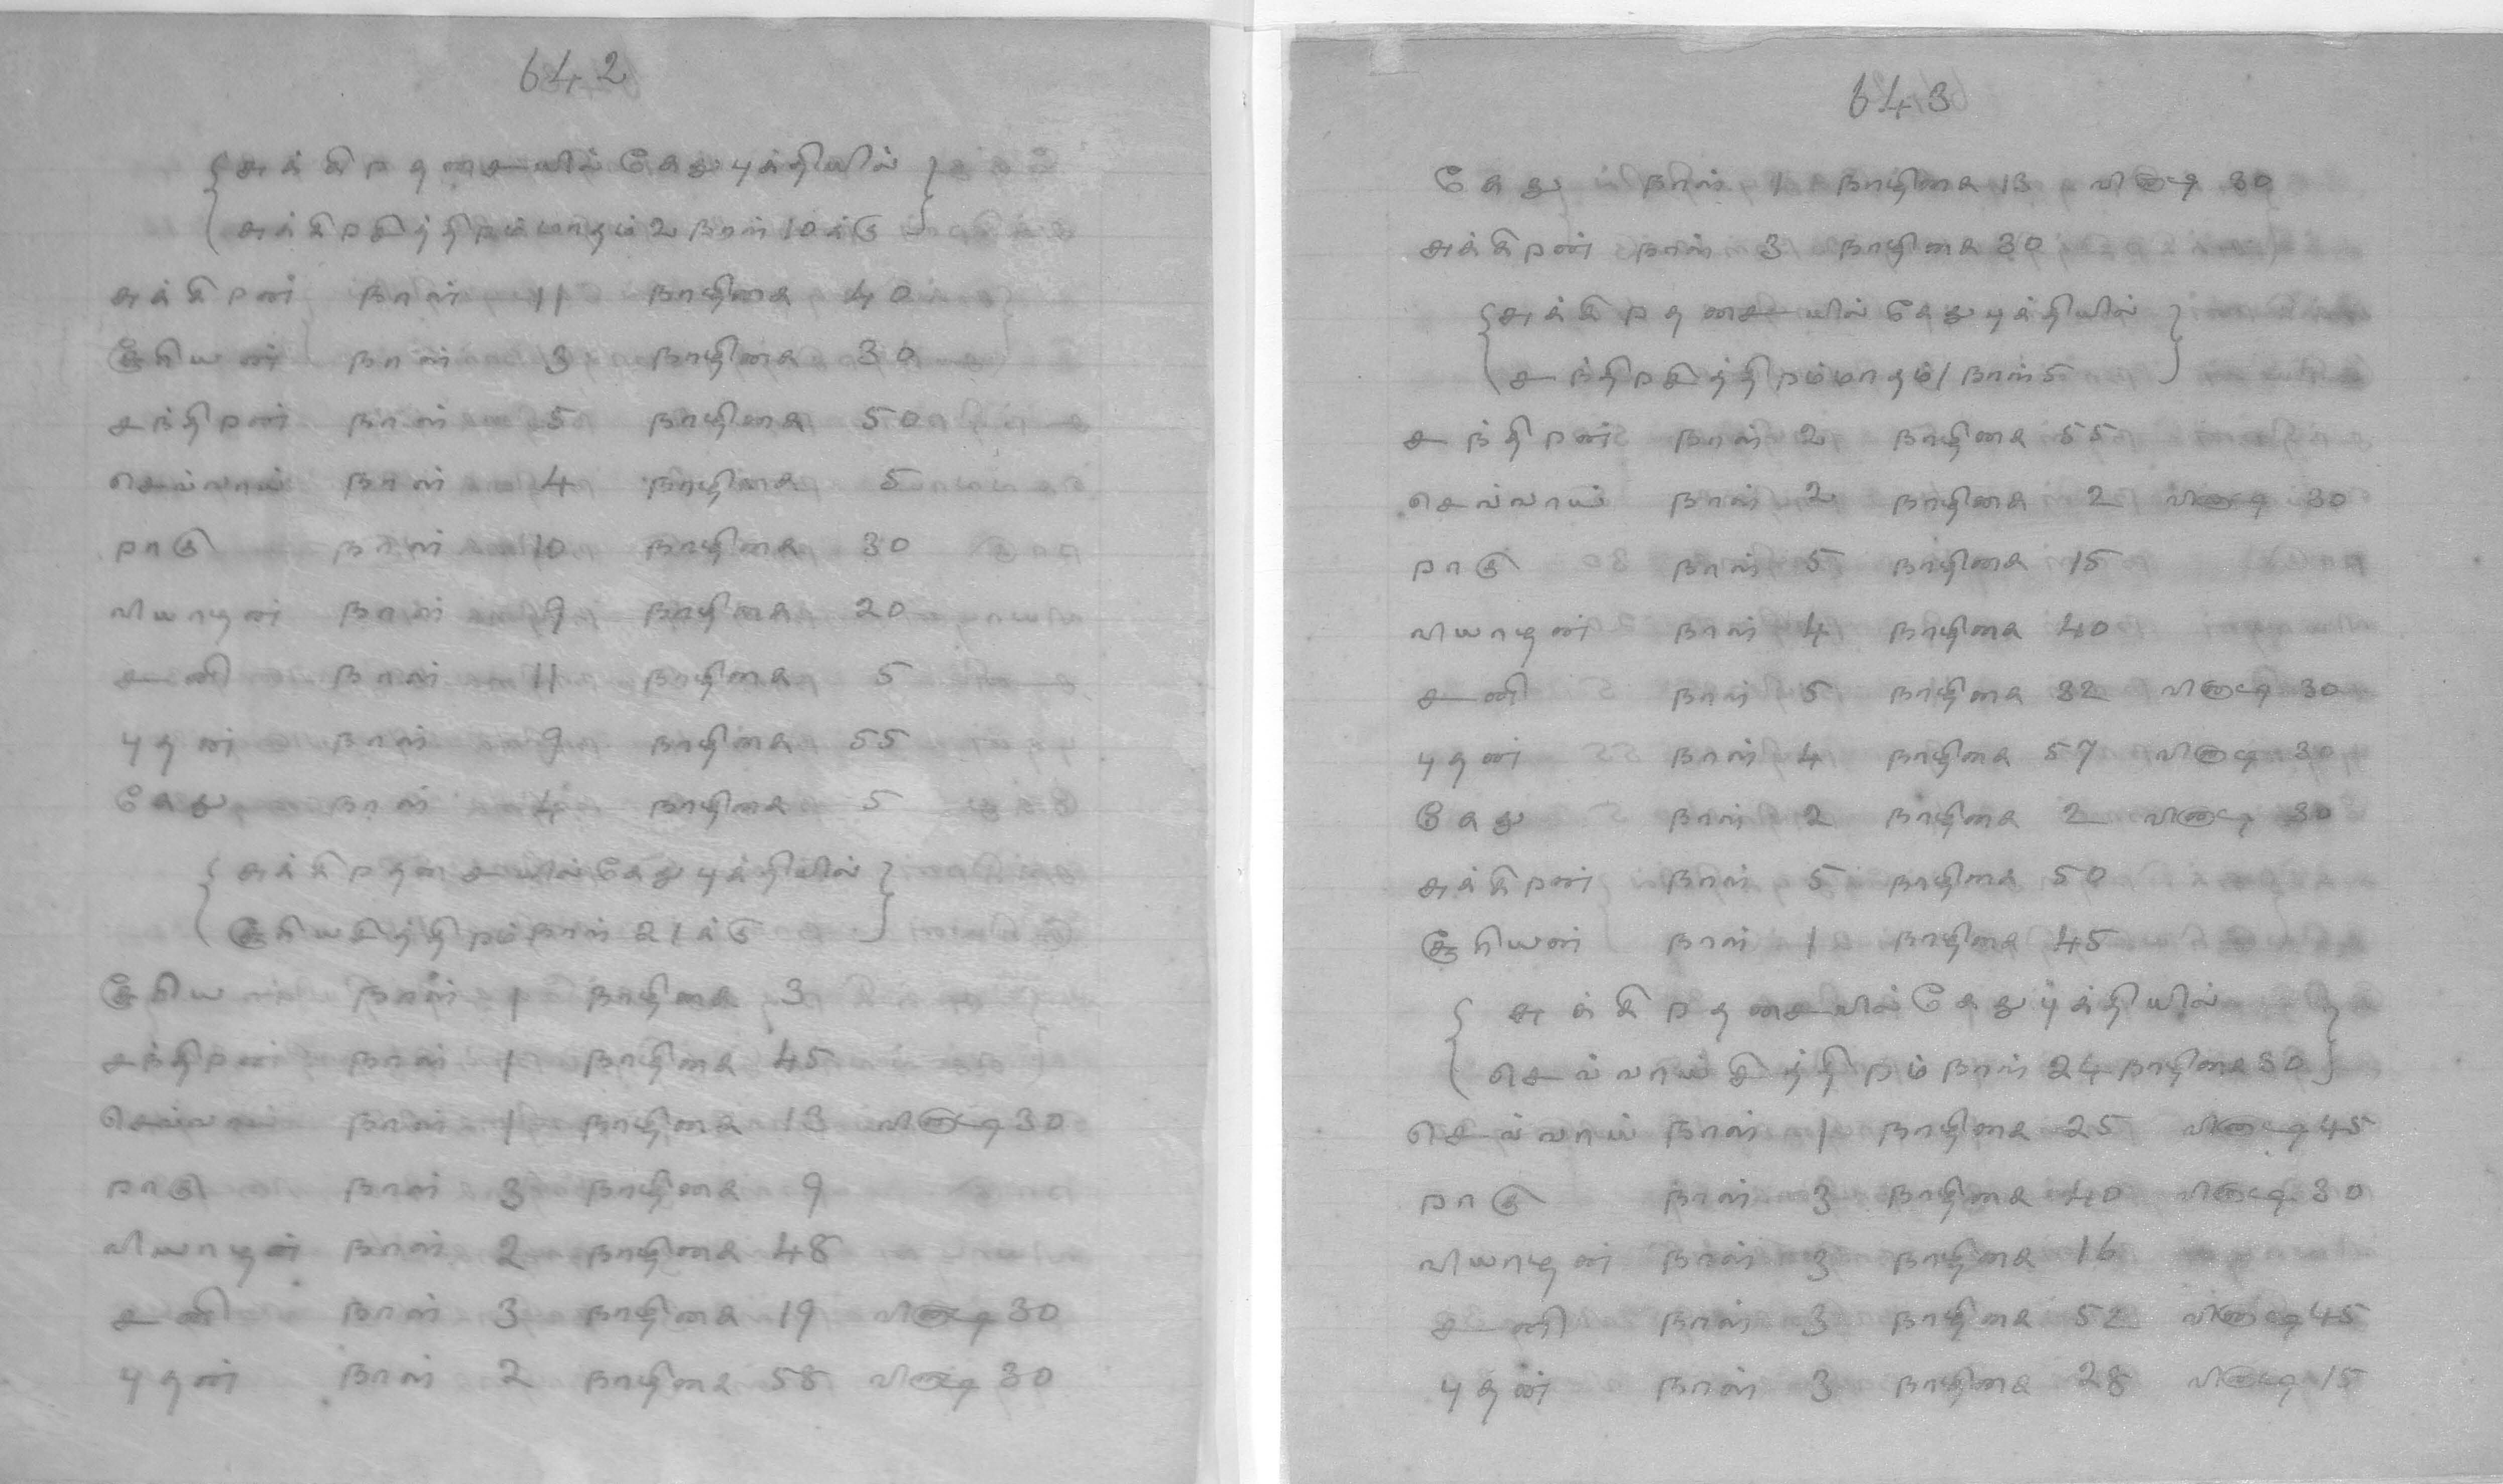 642
சுக்கிறதசையில் கேது புக்தியில்
சுக்கிறசித்திறம் மாதம் 2 நாள் 10 க்கு
சுக்கிறன் நாள் 11 நாழிகை 40
சூரியன் நாள் 3 நாழிகை 30
சந்திறன் நாள் 5 நாழிகை 50
செவ்வாய் நாள் 4 நாழிகை 5
றாகு நாள் 10 நாழிகை 30
வியாழன் நாள் 9 நாழிகை 20
சனி நாள் 11 நாழிகை 5
புதன் நாள் 9 நாழிகை 55
கேது நாள் 4 நாழிகை 5
சுக்கிறதசையில் கேது புக்தியில்
சூரியசித்திறம் நாள் 21 க்கு
சூரியன் நாள் 1 நாழிகை 3
சந்திறன் நாள் 1 நாழிகை 45
செவ்வாய் நாள் 1 நாழிகை 13 வினாடி 30
றாகு நாள் 3 நாழிகை 9
வியாழன் நாள் 2 நாழிகை 48
சனி நாள் 3 நாழிகை 19 வினாடி 30
புதன் நாள் 2 நாழிகை 58 வினாடி 30
643
கேது நாள் 1 நாழிகை 13 வினாடி 30
சுக்கிறன் நாள் 3 நாழிகை 30
சுக்கிறதசையில் கேது புக்தியில்
சந்திறசித்திறம் மாதம் 1 நாள் 5
சந்திறன் நாள் 2 நாழிகை 55
செவ்வாய் நாள் 2 நாழிகை 2 வினாடி 30
றாகு நாள் 5 நாழிகை 15
வியாழன் நாள் 4 நாழிகை 40
சனி நாள் 5 நாழிகை 32 வினாடி 30
புதன் நாள் 4 நாழிகை 57 வினாடி 30
கேது நாள் 2 நாழிகை 2 வினாடி 30
சுக்கிறன் நாள் 5 நாழிகை 50
சூரியன் நாள் 1 நாழிகை 45
சுக்கிறதசையில் கேது புக்தியில்
செவ்வாய்சித்திறம் நாள் 24 நாழிகை 30
செவ்வாய் நாள் 1 நாழிகை 25 வினாடி 45
றாகு நாள் 3 நாழிகை 40 வினாடி 30
வியாழன் நாள் 3 நாழிகை 16
சனி நாள் 3 நாழிகை 52 வினாடி 45
புதன் நாள் 3 நாழிகை 28 வினாடி 15